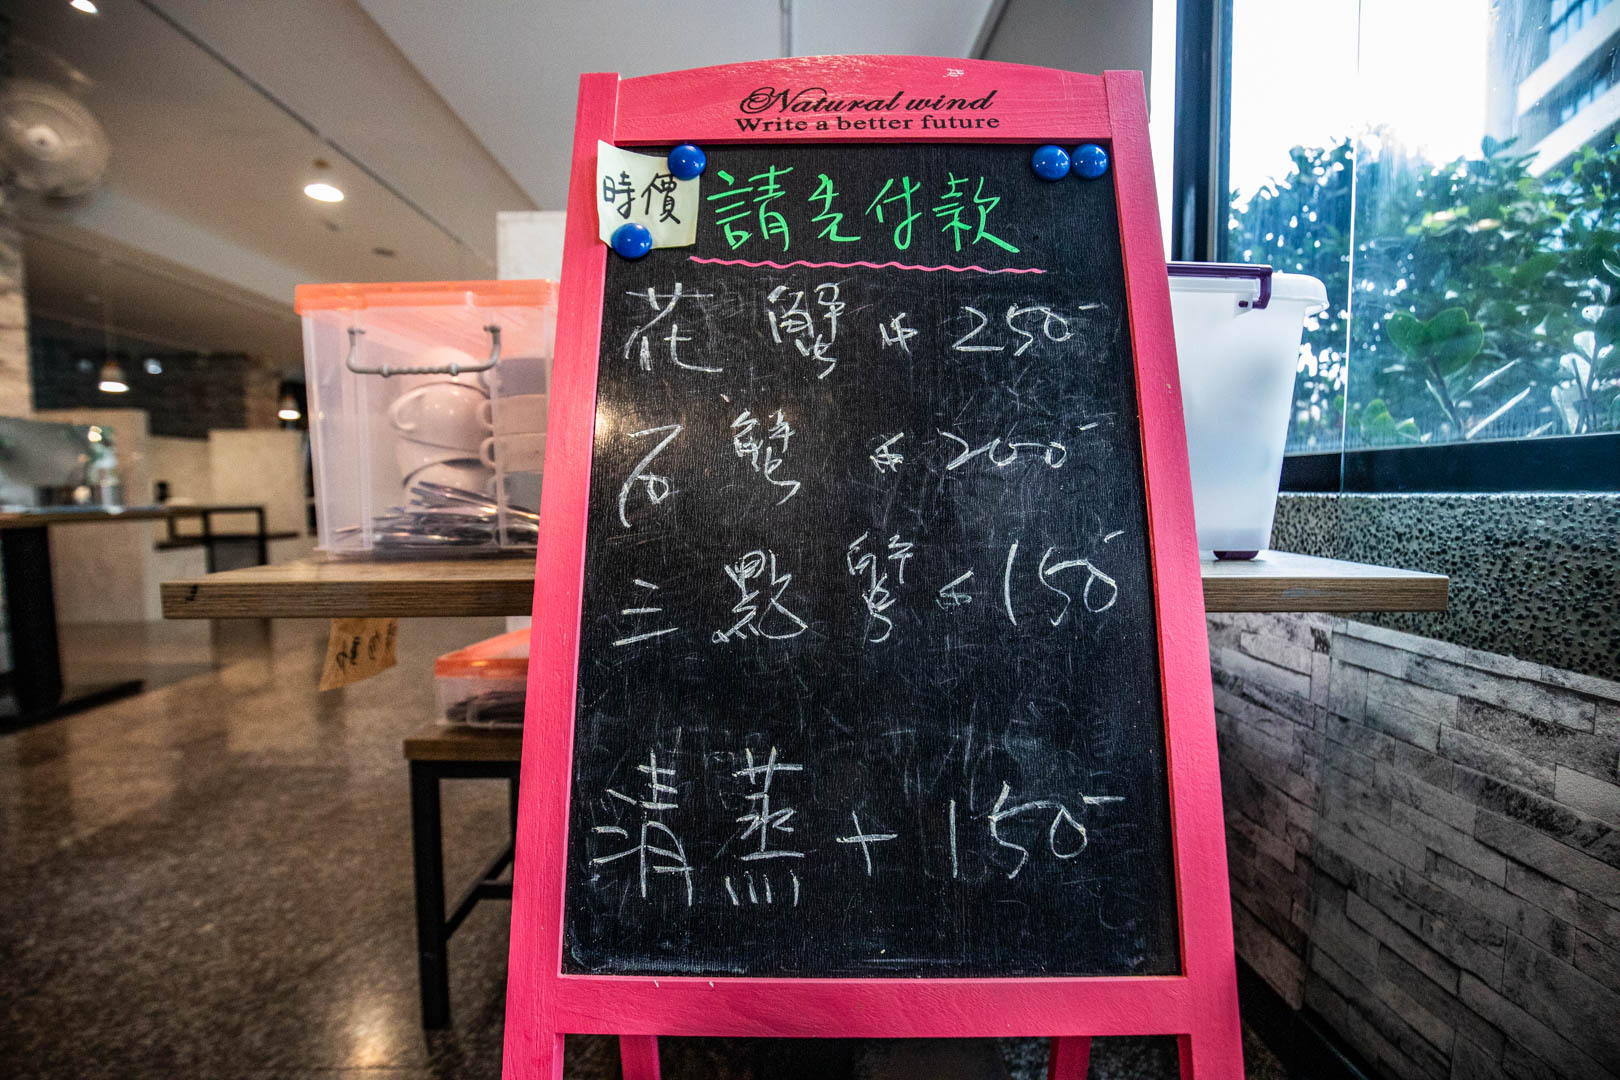 Natural wind
Write a better future
時價
請先付款
花蟹 250
石蟹 200
三點蟹 150
清蒸+150